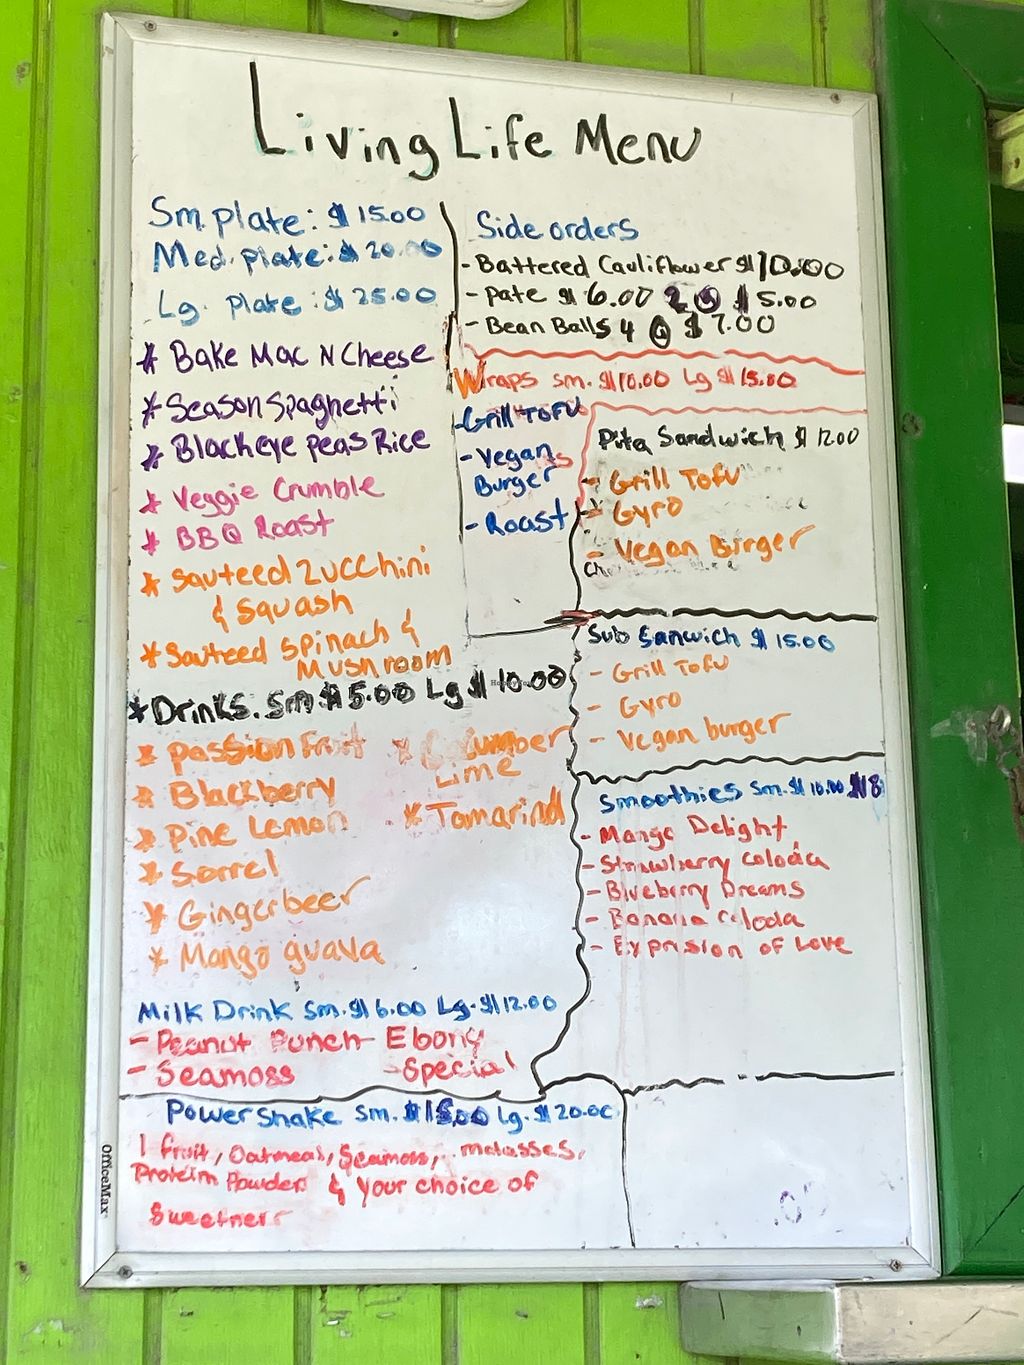 Living Life Menu
Sm. plate: $ 15.00
Med. plate: $ 20.00
Lg. Plate: $ 25.00
* Bake Mac N Cheese
* Season Spaghetti
* Blackeye peas Rice
* Veggie Crumble
* BBQ Roast
* Sauteed Zucchini
& Squash
* Sauteed Spinach &
Mushroom
* Drinks. Sm $ 5.00 Lg $ 10.00
* passion Fruit
* Blackberry
* Pine Lemon
* Sorrel
* Gingerbeer
* Mango guava
* Cucumber
Lime
* Tamarind
Milk Drink Sm. $ 6.00 Lg. $ 12.00
- Peanut Punch - Ebony
- Seamoss - Special
Power Shake Sm. Lg. $ 20.00
1 fruit, Oatmeal, Seamoss, molasses,
Protein Powder & your choice of
Sweetner
Side orders
- Battered Cauliflower $ 10.00
- Pate $ 6.00 2 @ $ 5.00
- Bean Balls 4 @ $ 7.00
Wraps sm. $ 10.00 Lg $ 15.00
- Grill TOFU
- Vegan
Burger
- Roast
Pita Sandwich $ 12.00
- Grill Tofu
- Gyro
- Vegan Burger
Sub Sanwich $ 15.00
- Grill Tofu
- Gyro
- Vegan burger
Smoothies Sm. $ 10.00 $ 18
- Mango Delight
- Strawberry coloda
- Blueberry Dreams
- Banana coloda
- Exprssion of Love
OfficeMax
HappyCow